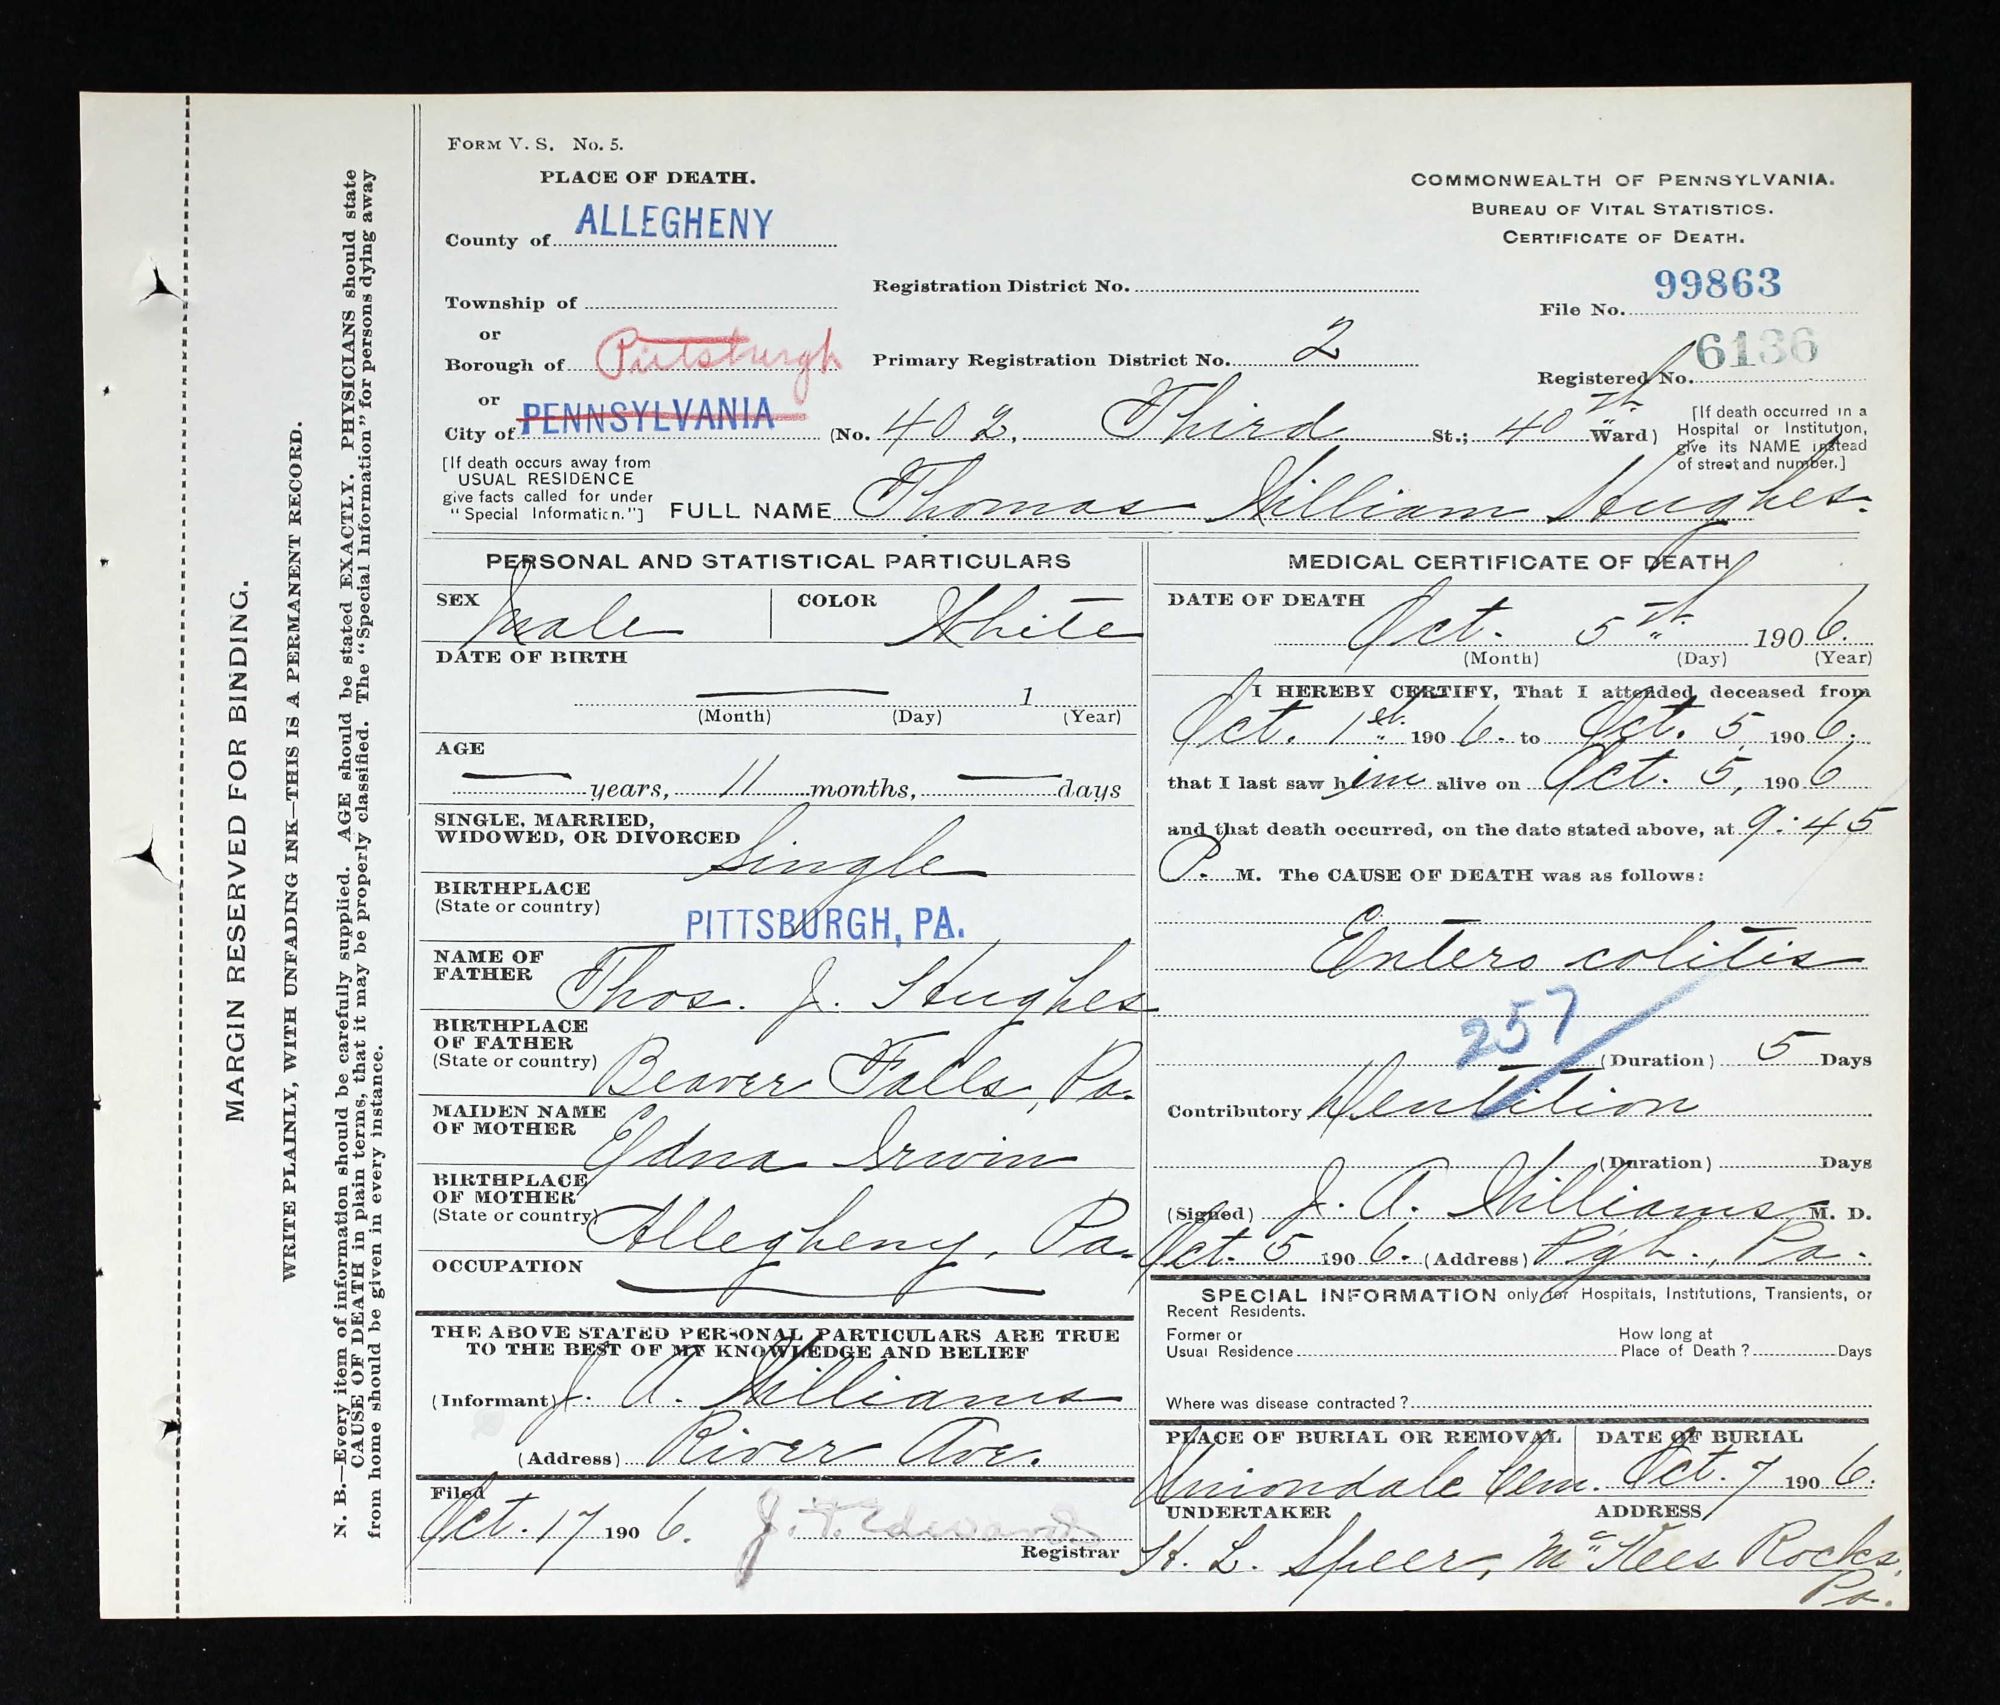 MARGIN RESERVED FOR BINDING.
WRITE PLAINLY, WITH UNFADING INK—THIS IS A PERMANENT RECORD.
N. B.—Every item of information should be carefully supplied. AGE should be stated EXACTLY. PHYSICIANS should state
CAUSE OF DEATH in plain terms, that it may be properly classified. The "Special Information" for persons dying away
from home should be given in every instance.
FORM V. S. No. 5.
PLACE OF DEATH.
County of ALLEGHENY
Township of
or
Borough of Pittsburgh
or
City of PENNSYLVANIA
[If death occurs away from
USUAL RESIDENCE
give facts called for under
"Special Information."]
COMMONWEALTH OF PENNSYLVANIA.
BUREAU OF VITAL STATISTICS.
CERTIFICATE OF DEATH.
Registration District No.
File No. 99863
Primary Registration District No. 2
Registered No. 6136
(No. 402, Third St.; 40th Ward)
[If death occurred in a
Hospital or Institution,
give its NAME instead
of street and number.]
FULL NAME Thomas William Hughes.
PERSONAL AND STATISTICAL PARTICULARS
SEX Male
COLOR White
DATE OF BIRTH
1
(Month) (Day) (Year)
AGE
years, 11 months, days
SINGLE, MARRIED,
WIDOWED, OR DIVORCED
Single
BIRTHPLACE
(State or country)
PITTSBURGH, PA.
NAME OF
FATHER
Thos. J. Hughes
BIRTHPLACE
OF FATHER
(State or country)
Beaver Falls, Pa.
MAIDEN NAME
OF MOTHER
Edna Irwin
BIRTHPLACE
OF MOTHER
(State or country)
Allegheny, Pa.
OCCUPATION
THE ABOVE STATED PERSONAL PARTICULARS ARE TRUE
TO THE BEST OF MY KNOWLEDGE AND BELIEF
(Informant) J. A. Williams
(Address) River Ave.
Filed
Oct. 17 1906. J. F. Edwards
Registrar
MEDICAL CERTIFICATE OF DEATH
DATE OF DEATH
Oct. 5th 1906.
(Month) (Day) (Year)
I HEREBY CERTIFY, That I attended deceased from
Oct. 1st 1906. to Oct. 5, 1906.
that I last saw him alive on Oct. 5, 1906
and that death occurred, on the date stated above, at 9:45
P. M. The CAUSE OF DEATH was as follows:
Entero colitis
257
(Duration) 5 Days
Contributory Dentition
(Duration) Days
(Signed) J. A. Williams M. D.
Oct. 5 1906. (Address) Pgh., Pa.
SPECIAL INFORMATION only for Hospitals, Institutions, Transients, or
Recent Residents.
Former or
Usual Residence
How long at
Place of Death? Days
Where was disease contracted?
PLACE OF BURIAL OR REMOVAL
Uniondale Cem.
DATE OF BURIAL
Oct. 7 1906.
UNDERTAKER
H. L. Speer,
ADDRESS
McKees Rocks,
Pa.